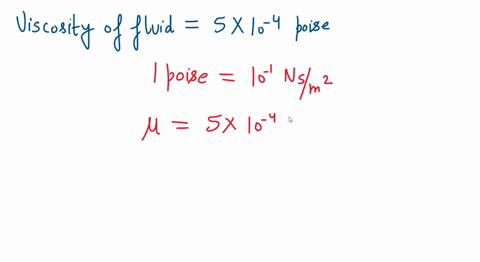 Viscosity of fluid = 5 X 10⁻⁴ poise
1 poise = 10⁻¹ Ns/m²
μ = 5 X 10⁻⁴